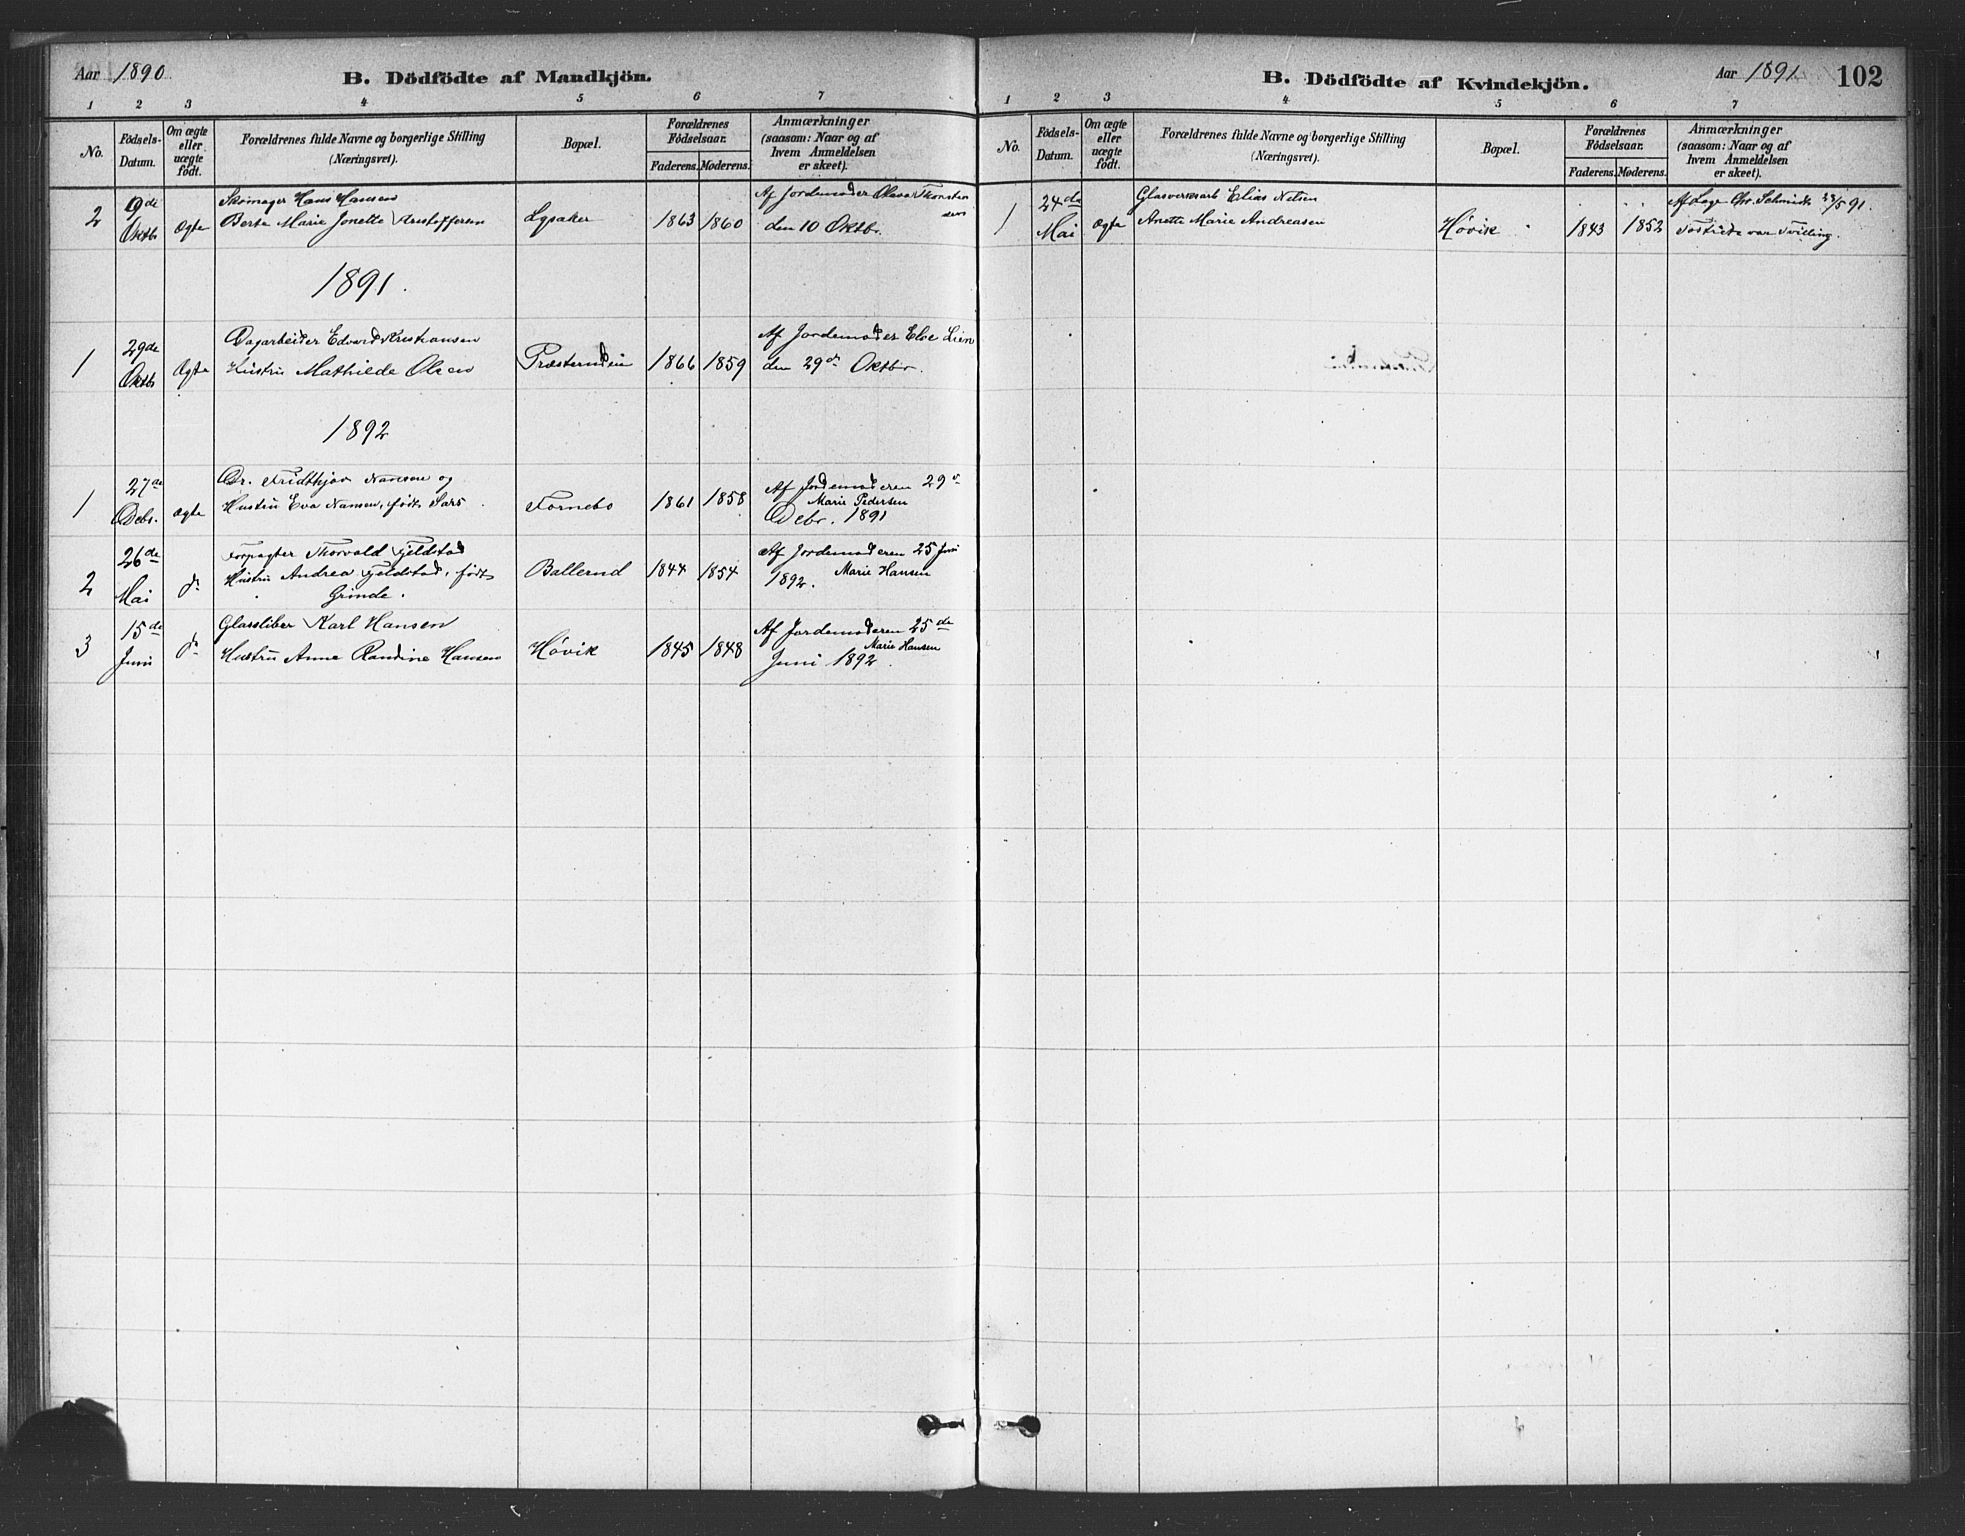 Aar 1890.
B. Dödfödte af Mandkjön.
1 2 3 4 5 6 7
No.
Födsels-
Datum.
Om ægte
eller
uægte
födt.
Forældrenes fulde Navne og borgerlige Stilling
(Næringsvei).
Bopæl.
Forældrenes
Födselsaar.
Faderens. Møderens.
Anmærkninger
(saasom: Naar og af
hvem Anmeldelsen
er skeet).
2
9de
Oktb
Ægte
Skomager Hans Hansen
Berte Marie Jonette Kristoffersen
Lysaker
1863 1860
Af Jordemoder Olava
den 10 Oktbr.
1891.
1
29de
Oktb
Ægte
Dagarbeider Edvard Kristiansen
Hustru Mathilde Olsen
1866 1859
Af Jordemoder Else Lien
den 29de Oktbr.
1892
1
27de
Debr.
Ægte
Dr. Fridthjov Nansen og
Hustru Eva Nansen, født Sars
Fornebo
1861 1858
Af Jordemoderen 29de
Marie Pedersen
Debr. 1891
2
26de
Mai
do
Forpagter Thorvald Fjeldstad
Hustru Andrea Fjeldstad, født
Grinde.
Ballerud
1844 1854
Af Jordemoderen 25 Juni
1892. Marie Hansen
3
15de
Juni
do
Glassliber Karl Hansen
Hustru Anne Randine Hansen
Høvik
1845 1848
Af Jordemoderen 25de
Marie Hansen
Juni 1892.
B. Dödfödte af Kvindekjön.
Aar 1891.
102
1 2 3 4 5 6 7
No.
Födsels-
Datum.
Om ægte
eller
uægte
födt.
Forældrenes fulde Navne og borgerlige Stilling
(Næringsvei).
Bopæl.
Forældrenes
Födselsaar.
Faderens. Møderens.
Anmærkninger
(saasom: Naar og af
hvem Anmeldelsen
er skeet).
1
24de
Mai
Ægte
Glasverksarb Elias Nilsen
Anette Marie Andreasen
Høvik
1843 1852
Af Læge Chr. Schmidt /5 91.
var Tvilling.